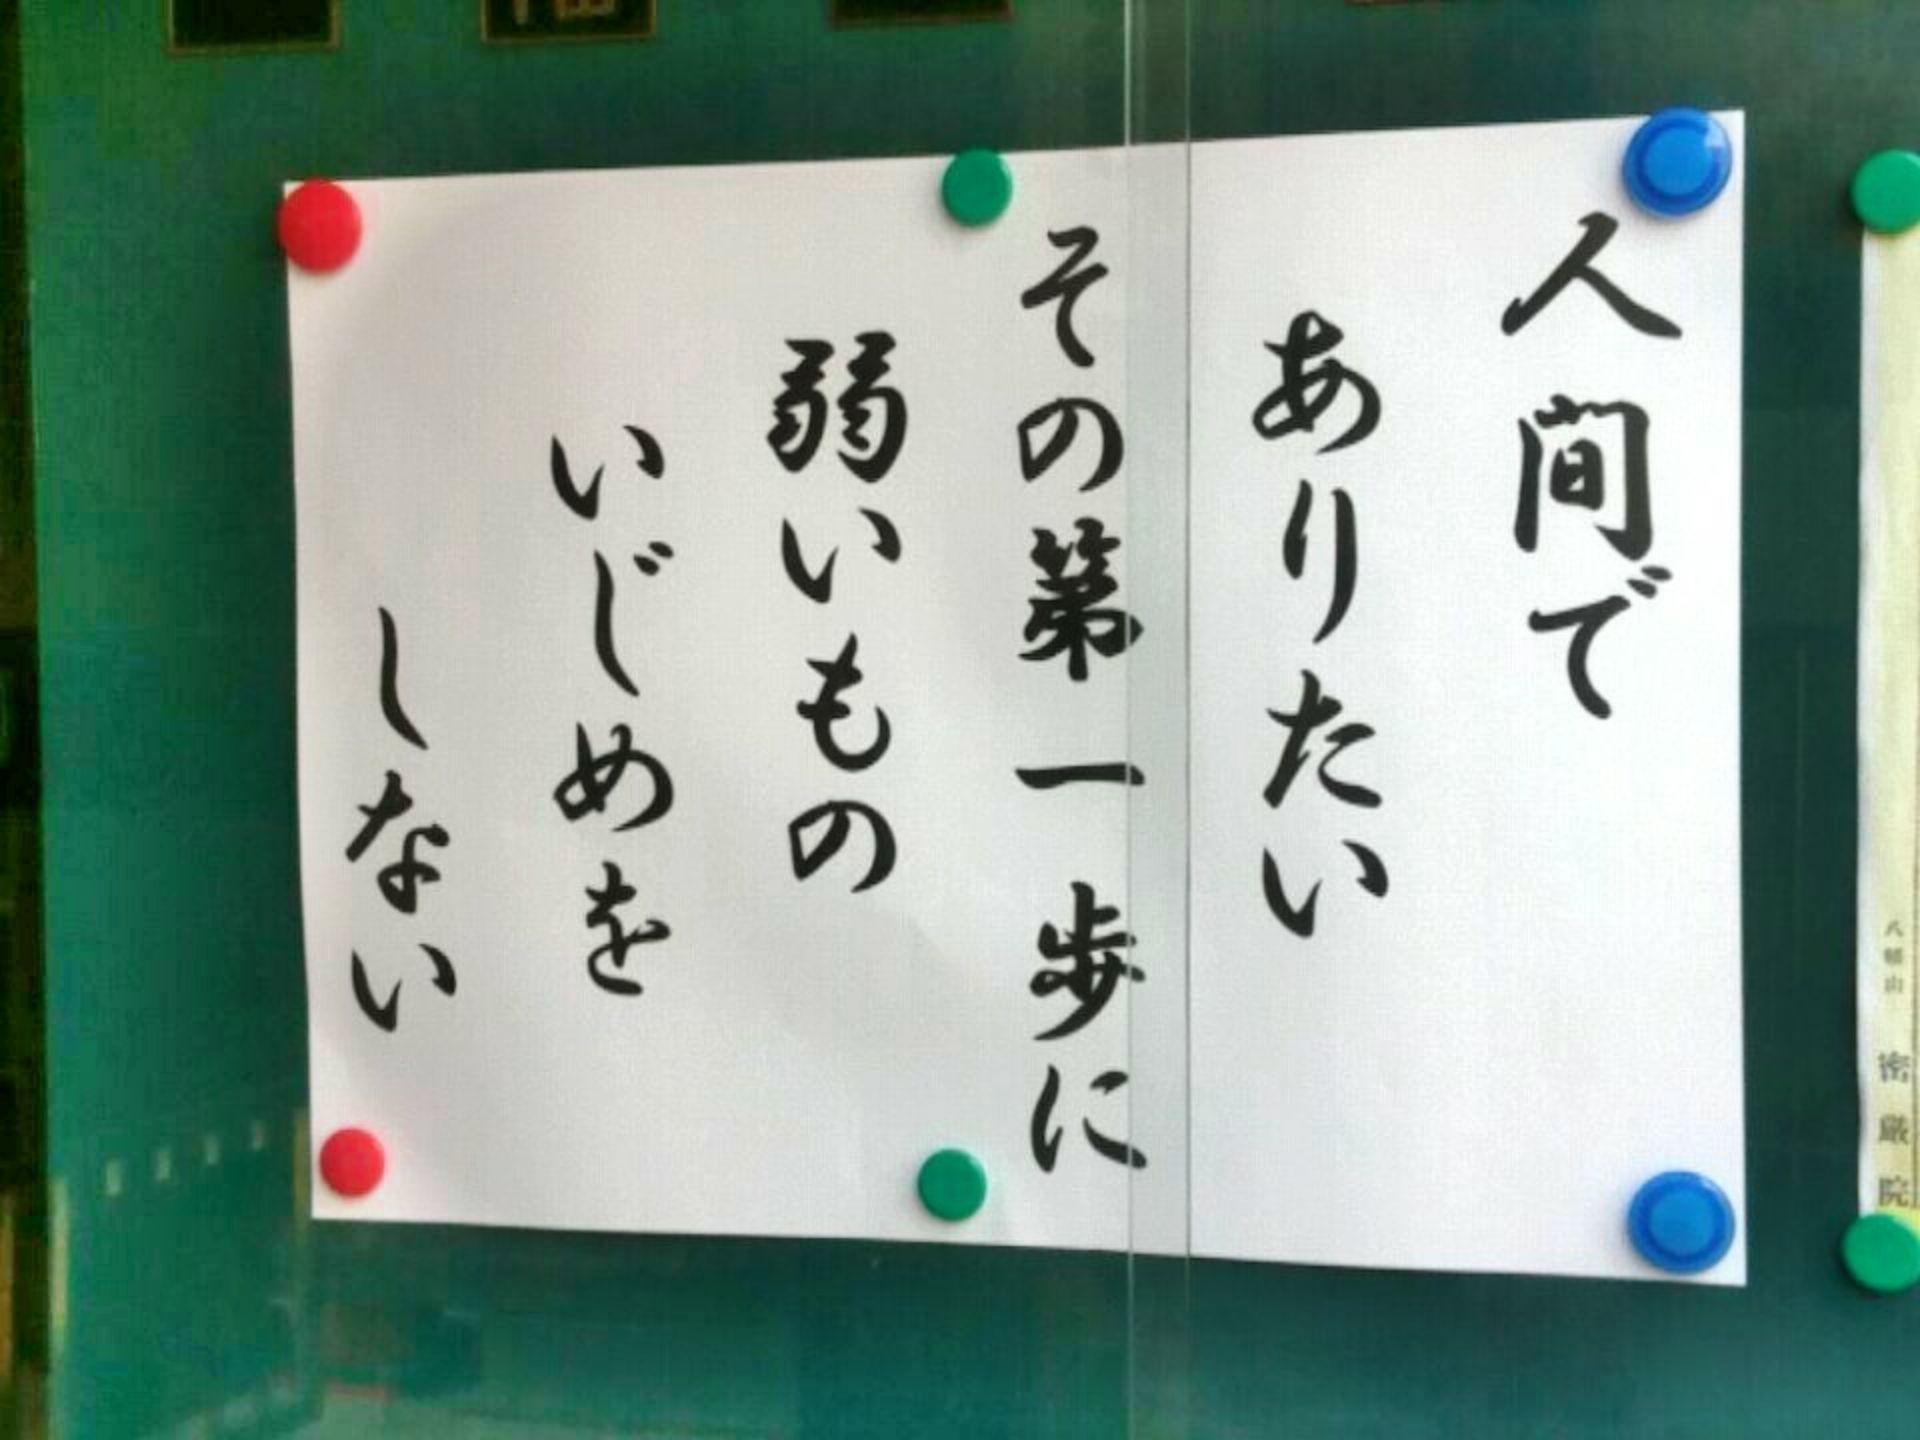 人間で
ありたい
その第一歩に
弱いもの
いじめを
しない
八幡山 密厳院